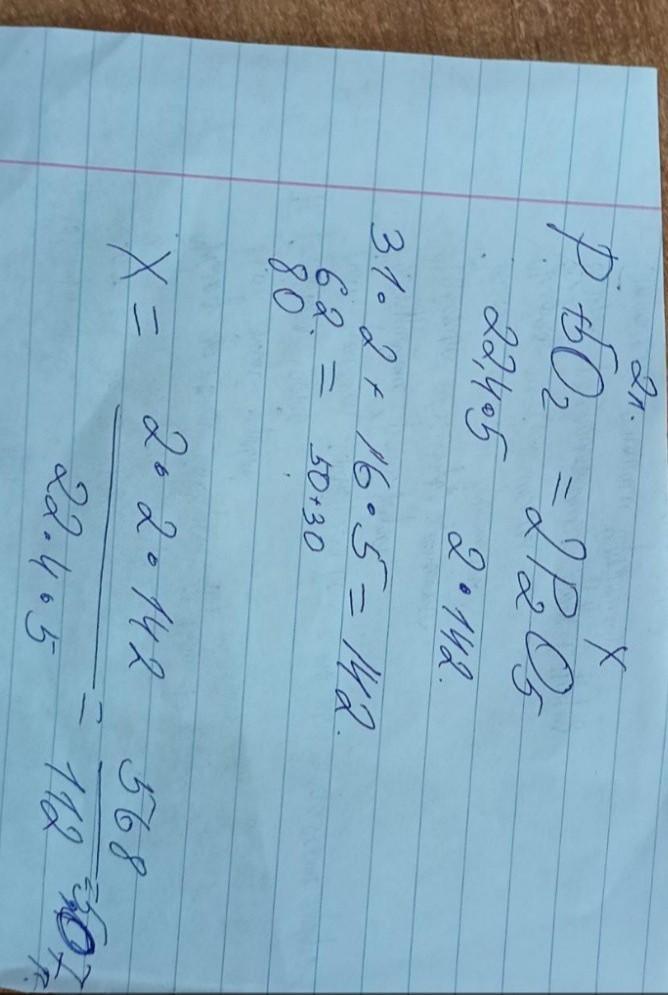 2л. X
P + 5O₂ = 2P₂O₅
22,4·5 2·142.
31·2 + 16·5 = 142.
62. = 50+30
80
X = 2·2·142 / 22.4·5 = 568 / 112 =